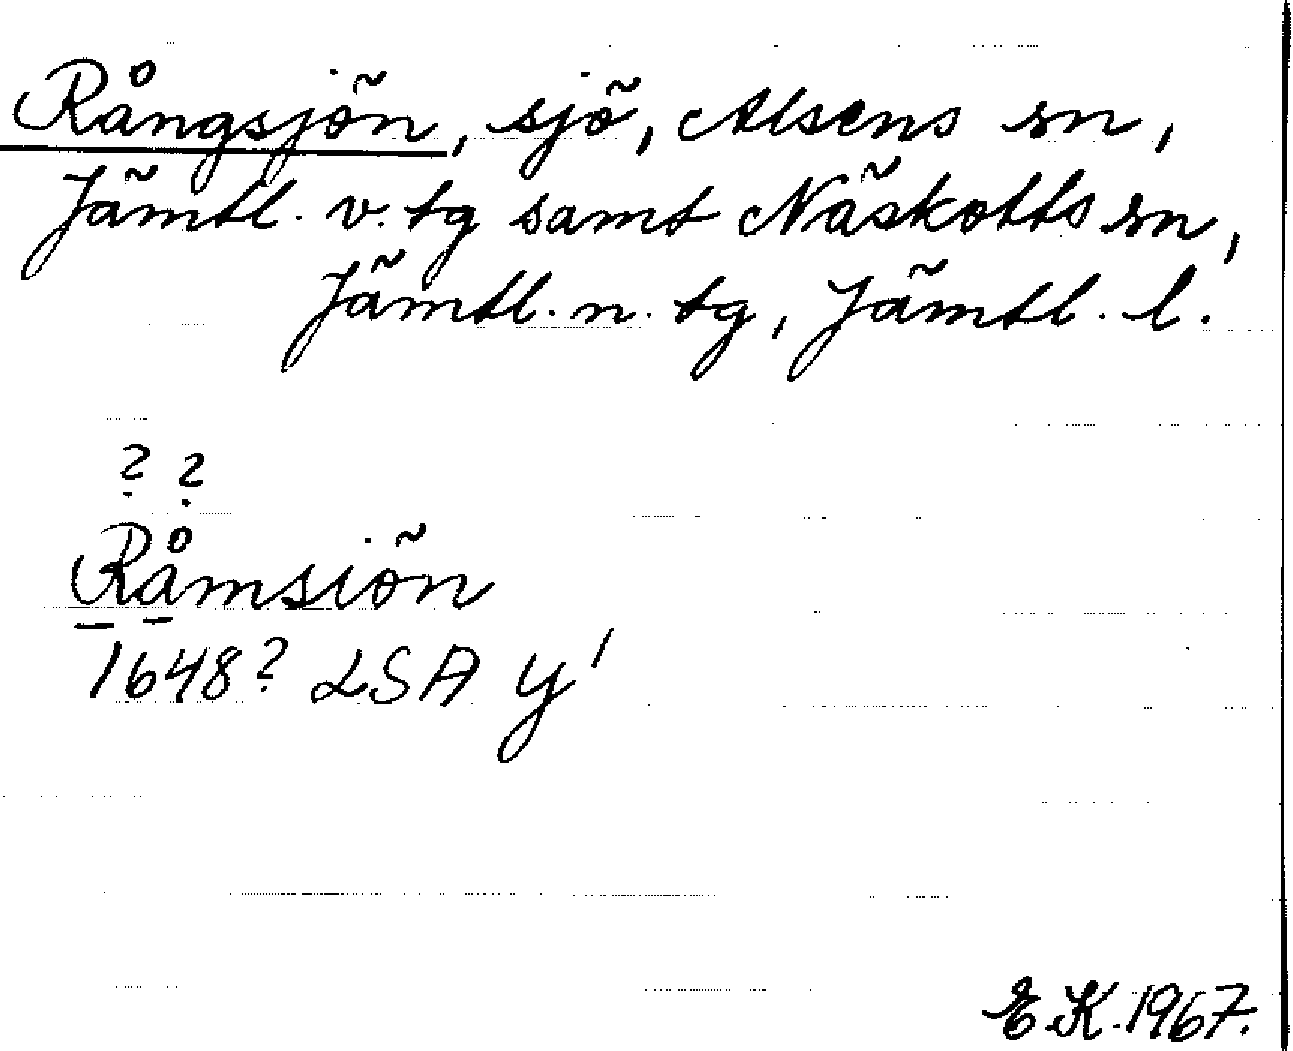 Rångsjön, sjö, Alsens sn,
Jämtl. v. tg samt Näskotts sn,
Jämtl. n. tg, Jämtl. l.
? ?
Råmsiön
1648? LSA Y 1
E.K. 1967.